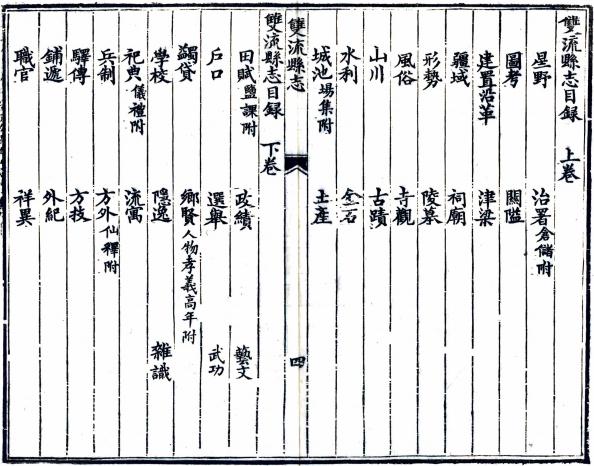 雙流縣志目録 上卷
星野 治署倉儲附
圖考 關隘
建置沿革 津梁
疆域 祠廟
形勢 陵墓
風俗 寺觀
山川 古蹟
水利 金石
城池場集附 土産
雙流縣志 四
雙流縣志目録 下卷
田賦鹽課附 政績 藝文
戶口 選舉 武功
蠲貸 鄉賢人物孝義高年附
學校 隱逸 雜識
祀典儀禮附 流寓
兵制 方外仙釋附
驛傳 方技
鋪遞 外紀
職官 祥異